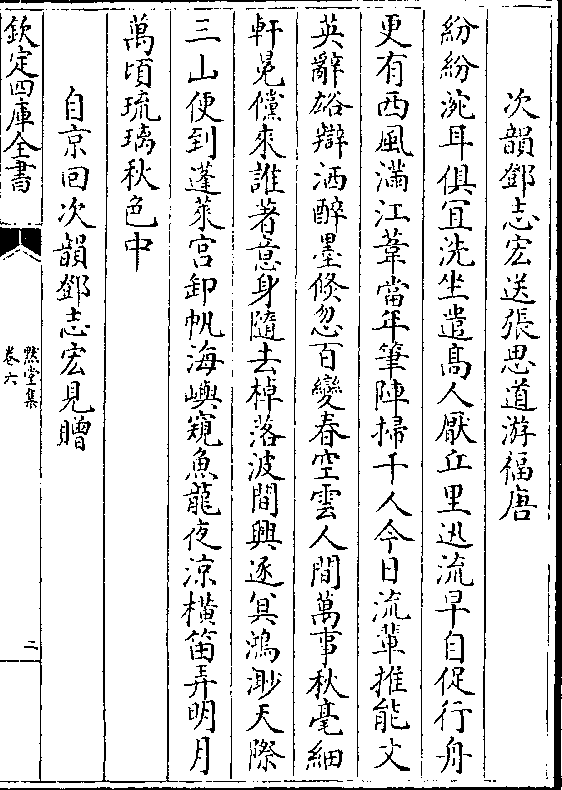 次韻鄧志宏送張思道游福唐
紛紛涴耳俱冝洗坐遣髙人厭丘里迅流早自促行舟
更有西風滿江葦當年筆陣掃千人今日流輩推能文
英辭辯洒醉墨倐忽百變春空雲人間萬事秋毫細
軒冕儻來誰著意身隨去棹落波間興逐冥鴻渺天際
三山便到蓬萊宮卸帆海嶼窺魚龍夜涼橫笛弄明月
萬頃琉璃秋色中
自京回次韻鄧志宏見贈
欽定四庫全書
黙堂集
卷六
二